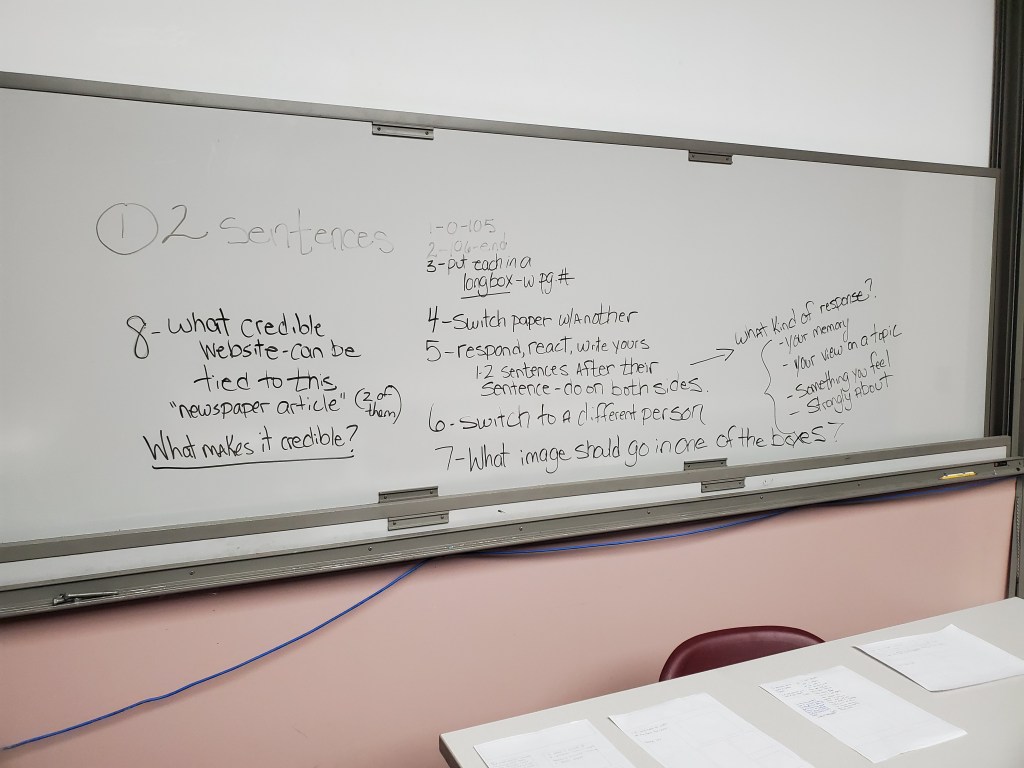 ① 2 Sentences
1-0-105
2-106-end
3-put each in a
longbox-w pg.#
4-Switch paper w/Another
5-respond, react, write yours
1-2 sentences After their
sentence-do on both sides.
6-Switch to a different person
7-What image should go in one of the boxes?
8-what credible
website-can be
tied to this
"newspaper article" (2 of
them)
What makes it credible?
What kind of response?
-your memory
-your view on a topic
-Something you feel
-Strongly About